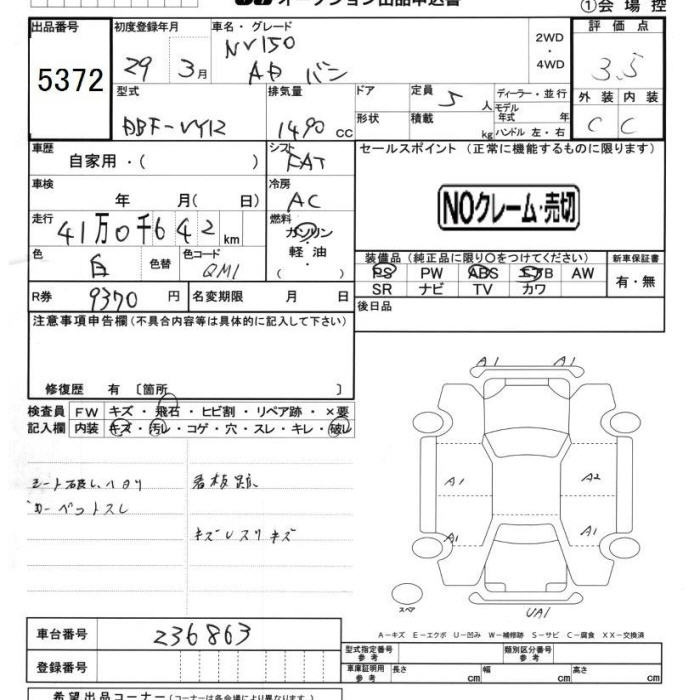 オークション出品申込書
①会場控
出品番号
5372
初度登録年月
29 3月
車名・グレード
NV150
AD バン
2WD
・
4WD
評価点
3.5
型式
DBF-VY12
排気量
1490 cc
ドア
形状
定員 5 人
積載 kg
ディーラー・並行
モデル年式 年
ハンドル 左・右
外装 内装
C C
車歴
自家用・( )
シフト
FAT
セールスポイント (正常に機能するものに限ります)
NOクレーム・売切
車検
年 月( 日)
冷房
AC
走行
41万0千642 km
燃料
ガソリン
軽油
( )
色
白
色替
色コード
QM1
装備品 (純正品に限り○をつけてください)
PS PW ABS エアB AW
SR ナビ TV カワ
新車保証書
有・無
R券 9370 円
名変期限 月 日
後日品
注意事項申告欄(不具合内容等は具体的に記入して下さい)
修復歴 有 〔箇所 〕
検査員 FW キズ・飛石・ヒビ割・リペア跡・×要
記入欄 内装 キズ・汚レ・コゲ・穴・スレ・キレ・破レ
シート破レ ハリ
カーペットスレ
看板跡
キズ U スリキズ
A1 A1
A1 A2
A1 A1
スペア
UA1
A-キズ E-エクボ U-凹み W-補修跡 S-サビ C-腐食 XX-交換済
車台番号 236863
登録番号
型式指定番号 参考
類別区分番号 参考
車庫証明用 参考 長さ cm 幅 cm 高さ cm
希望出品コーナー(コーナーは各会場により異なります。)